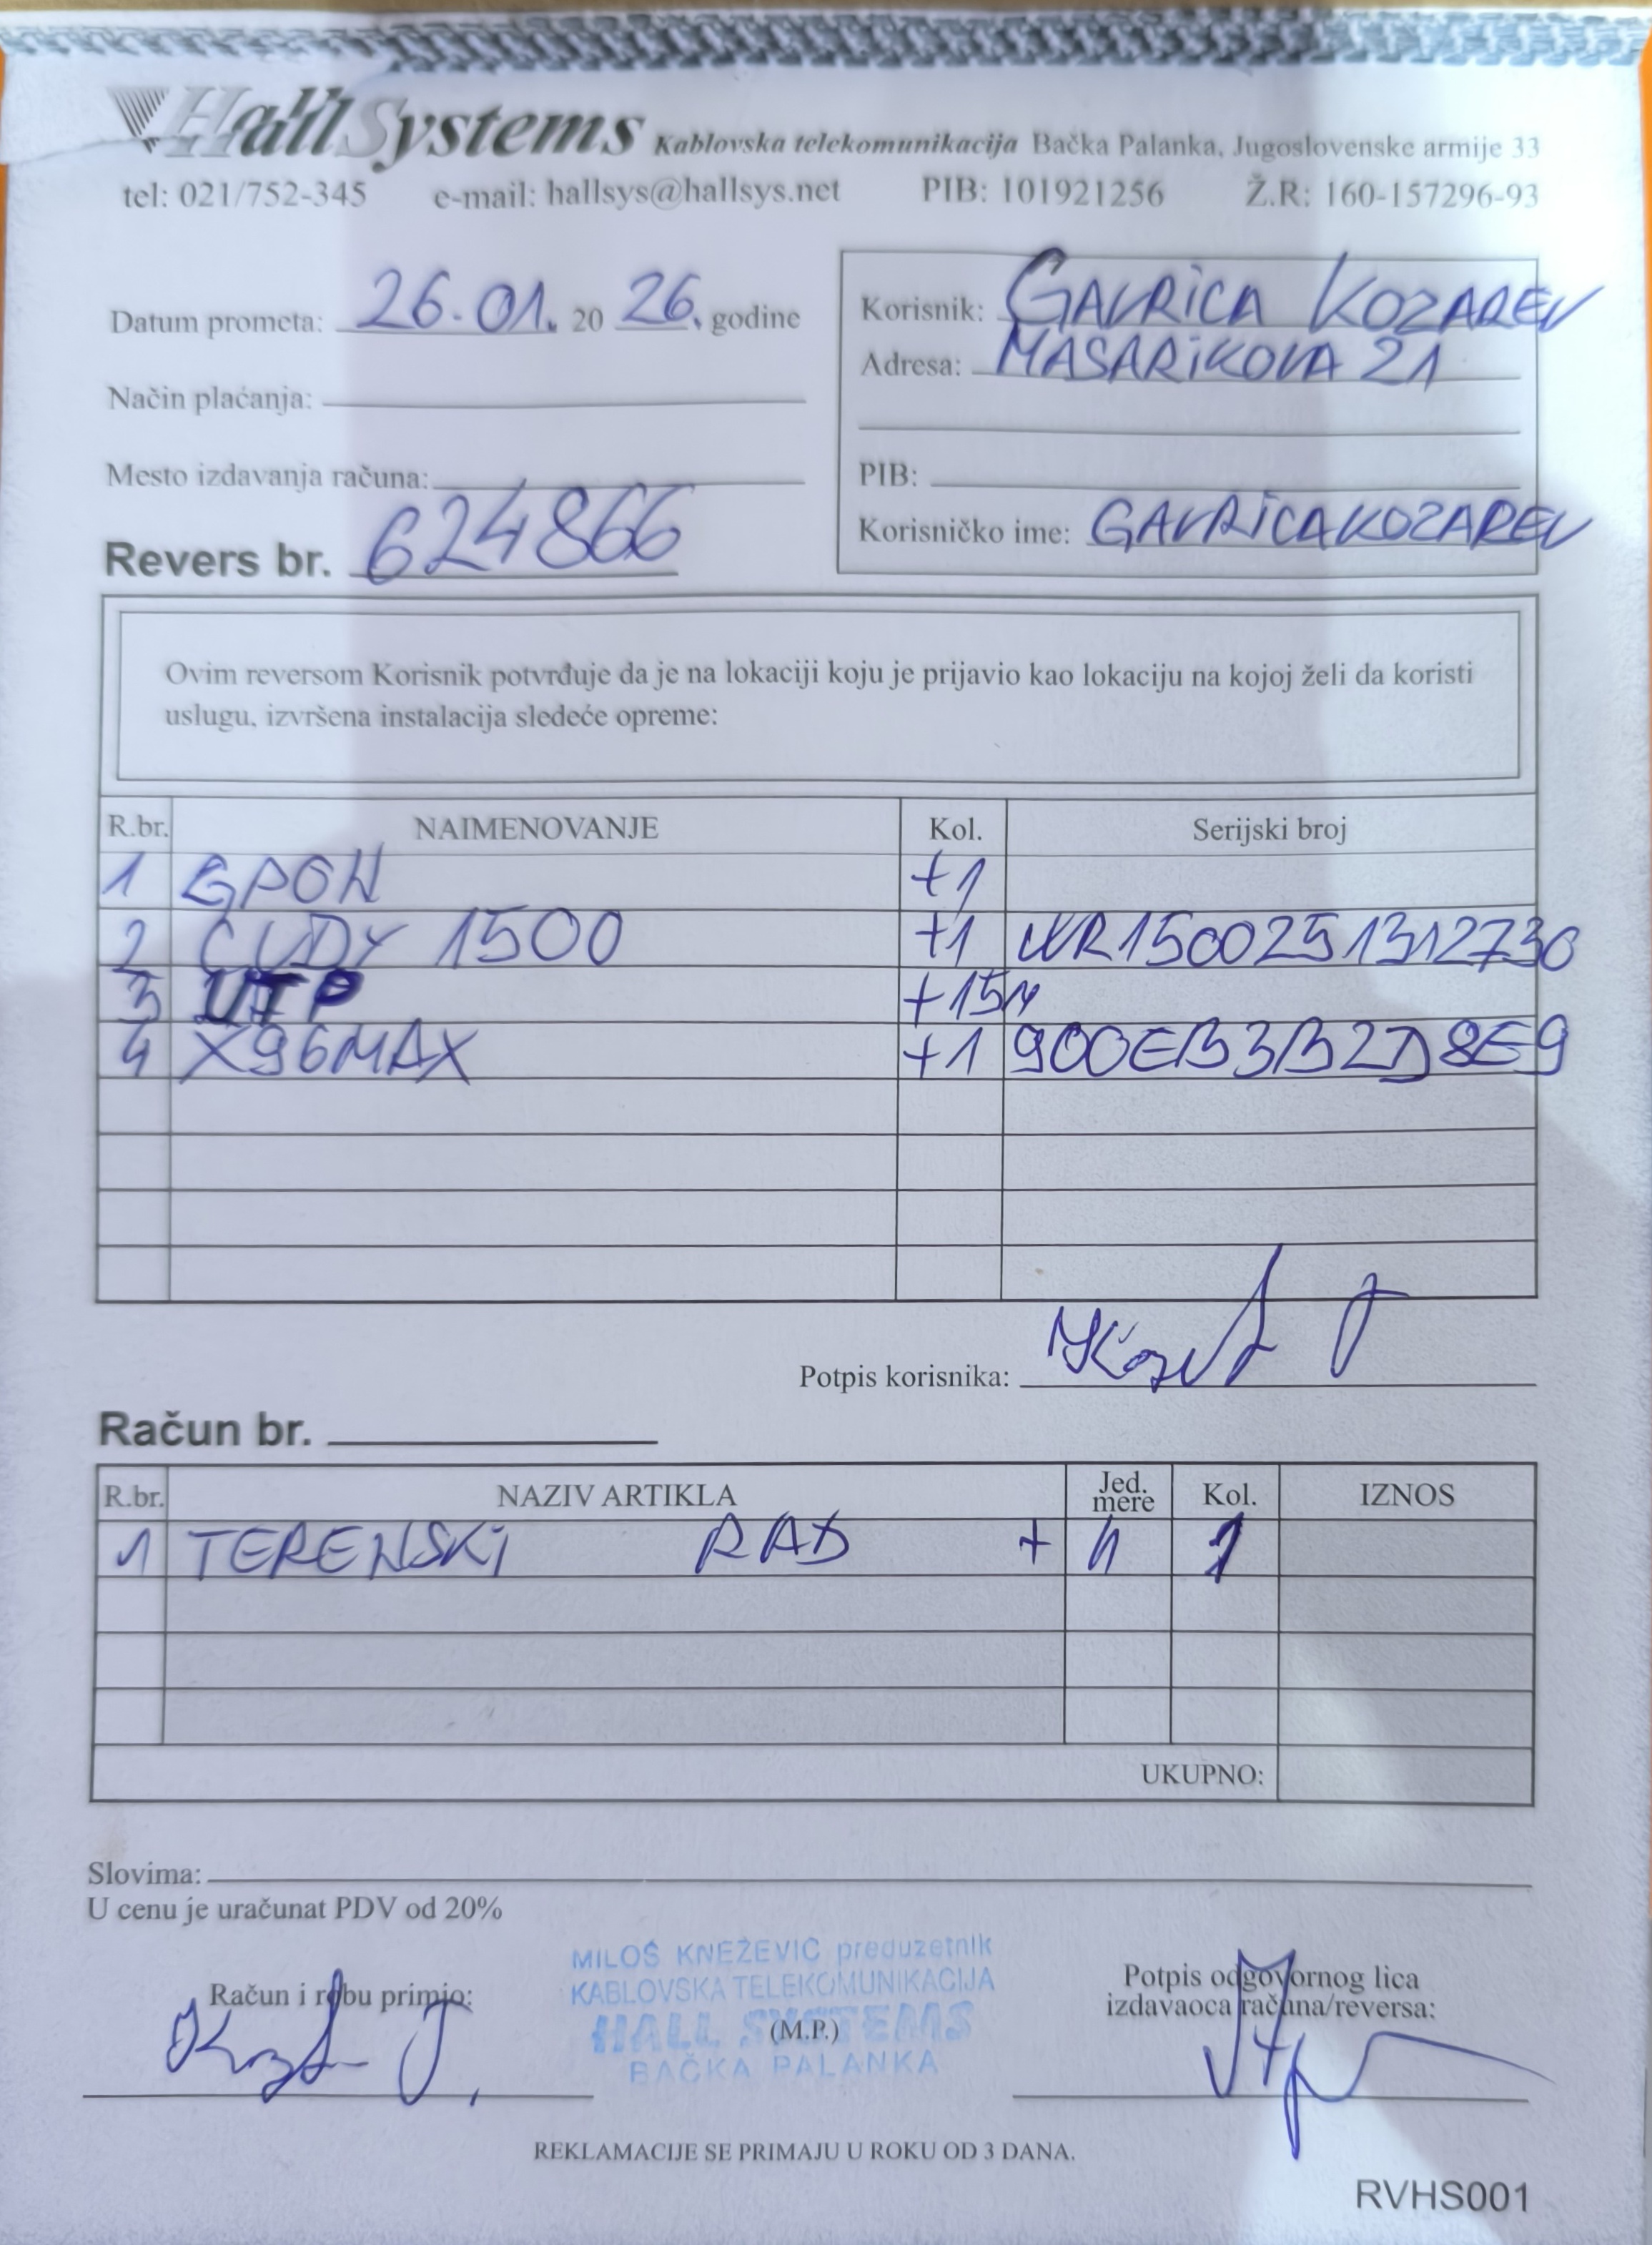 Hall Systems Kablovska telekomunikacija Bačka Palanka, Jugoslovenske armije 33
tel: 021/752-345 e-mail: hallsys@hallsys.net PIB: 101921256 Ž.R: 160-157296-93
Datum prometa: 26.01. 20 26. godine
Način plaćanja:
Mesto izdavanja računa:
Revers br. 624866
Korisnik: GAVRiCA KOZAREV
Adresa: MASARiKOVA 21
PIB:
Korisničko ime: GAVRiCAKOZAREV
Ovim reversom Korisnik potvrđuje da je na lokaciji koju je prijavio kao lokaciju na kojoj želi da koristi
uslugu, izvršena instalacija sledeće opreme:
R.br. NAIMENOVANJE Kol. Serijski broj
1 GPON +1
2 CUDY 1500 +1 WR1500251312730
3 UTP +15M
4 X96MAX +1 900EB3B2D8E9
Potpis korisnika:
Račun br.
R.br. NAZIV ARTIKLA Jed. mere Kol. IZNOS
1 TERENSKi RAD + h 1
UKUPNO:
Slovima:
U cenu je uračunat PDV od 20%
Račun i robu primio:
MILOŠ KNEŽEVIĆ preduzetnik
KABLOVSKA TELEKOMUNIKACIJA
HALL SYSTEMS
(M.P.)
BAČKA PALANKA
Potpis odgovornog lica
izdavaoca računa/reversa:
REKLAMACIJE SE PRIMAJU U ROKU OD 3 DANA.
RVHS001